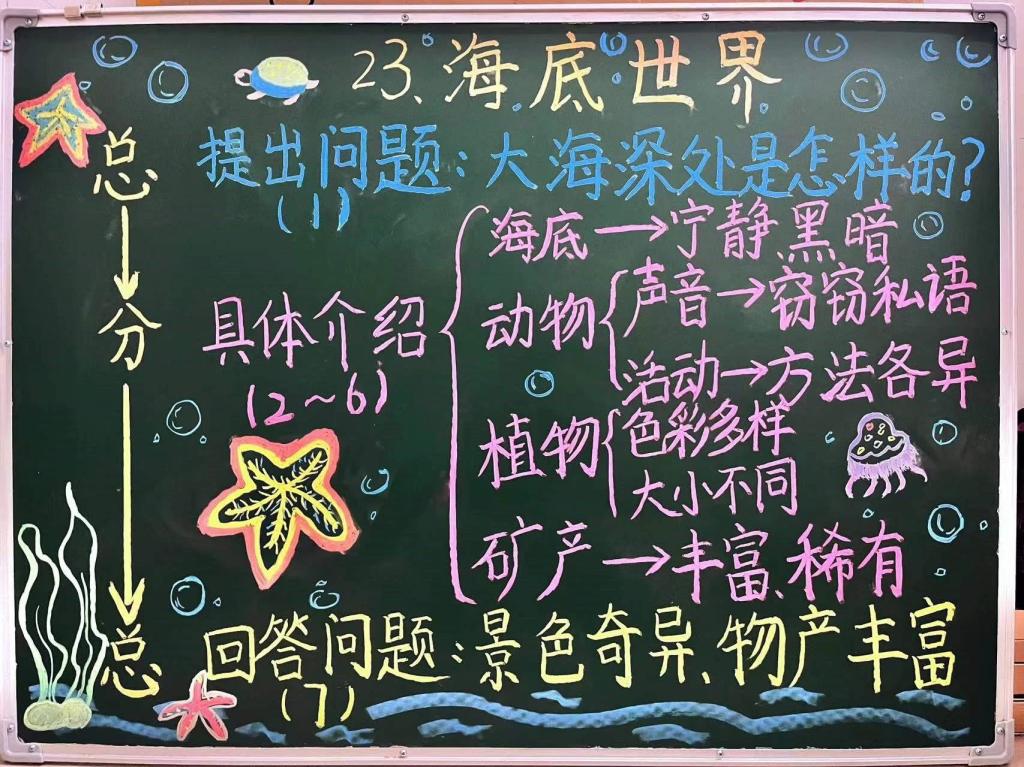 23、海底世界
总
提出问题：大海深处是怎样的？
(1)
分
具体介绍
(2~6)
海底→宁静、黑暗
动物
声音→窃窃私语
活动→方法各异
植物
色彩多样
大小不同
矿产→丰富、稀有
总
回答问题：景色奇异、物产丰富
(7)